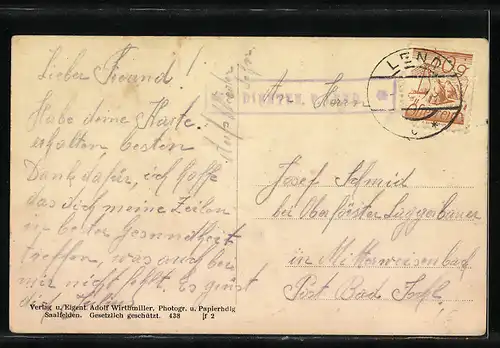 Lieber Freund!
Habe deine Karte
erhalten, besten
Dank dafür, ich hoffe
das dich meine Zeilen
in bester Gesundheit
treffen, was auch bei
mir nicht fehlt. Es grüsst
dich
An Herrn
Josef Schmid
bei Oberförster Luggebauer
in Mitterweisenbach
Post Bad Ischl
LEND
DIENTEN
Verlag u. Eigent. Adolf Wirthmiller, Photogr. u. Papierhdlg
Saalfelden. Gesetzlich geschützt. 438 f 2